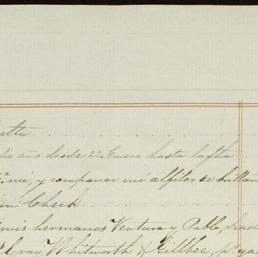 año desde 22 Enero hasta la fha
y componer mi alfiler de brillan
Check
mis hermanos Ventura y Pablo, has
Whitworth & Gillbee, p. ga